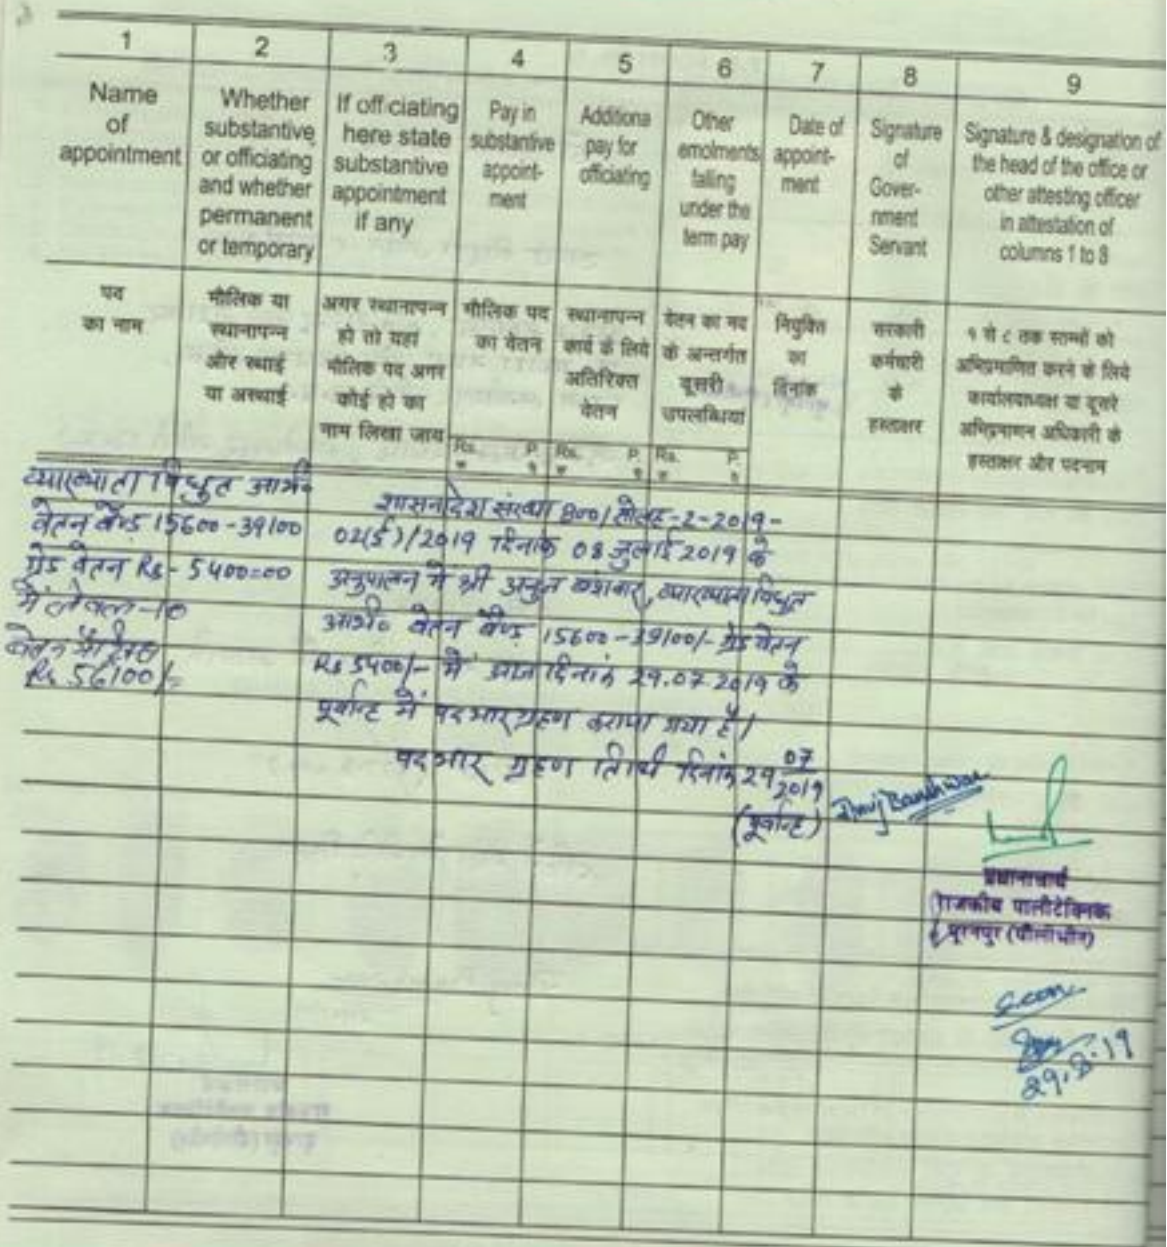 1 2 3 4 5 6 7 8 9
Name of appointment
Whether substantive or officiating and whether permanent or temporary
If officiating here state substantive appointment if any
Pay in substantive appoint-ment
Additiona pay for officiating
Other emolments falling under the term pay
Date of appoint-ment
Signature of Gover-nment Servant
Signature & designation of the head of the office or other attesting officer in attestation of columns 1 to 8
पद का नाम
मौलिक या स्थानापन्न और स्थाई या अस्थाई
अगर स्थानापन्न हो तो यहां मौलिक पद अगर कोई हो का नाम लिखा जाय
मौलिक पद का वेतन
स्थानापन्न कार्य के लिये अतिरिक्त वेतन
वेतन का मद के अन्तर्गत दूसरी उपलब्धिया
नियुक्ति का दिनांक
सरकारी कर्मचारी के हस्ताक्षर
१ से ८ तक स्तम्भों को अभिप्रमाणित करने के लिये कार्यालयाध्यक्ष या दूसरे अभिप्रमाणन अधिकारी के हस्ताक्षर और पदनाम
Rs. P. Rs. P. Rs. P.
व्याख्याता विधुत अभि०
वेतन बैण्ड 15600-39100
ग्रेड वेतन Rs- 5400=00
में लेवल-10
Rs 56100/-
शासनादेश संख्या 800/सोलह-2-2019-
02(ई)/2019 दिनांक 08 जुलाई 2019 के
अनुपालन में श्री अनुज बंशवार, व्याख्याता विधुत
अभि० वेतन बैण्ड 15600-39100/- ग्रेड वेतन
Rs 5400/- में आज दिनांक 29.07.2019 के
पूर्वान्ह में पदभार ग्रहण कराया गया है।
पदभार ग्रहण तिथि दिनांक 29 07 2019
(पूर्वान्ह)
Anuj Banshwar
प्रधानाचार्य
राजकीय पालीटेक्निक
पूरनपुर (पीलीभीत)
Seen
29.8.19